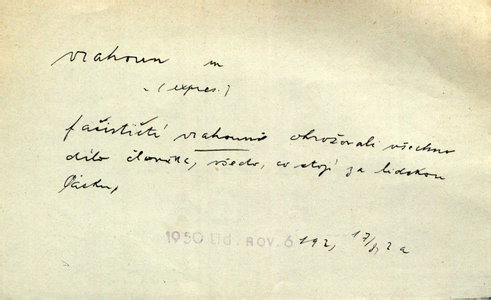 vrahoun m
(expres.)
fašističtí vrahouni ohrožovali všechno
dílo člověka, všecko, co stojí za lidskou
lásku,
1950 Lid. nov. 6 192, 17/8, 2 a